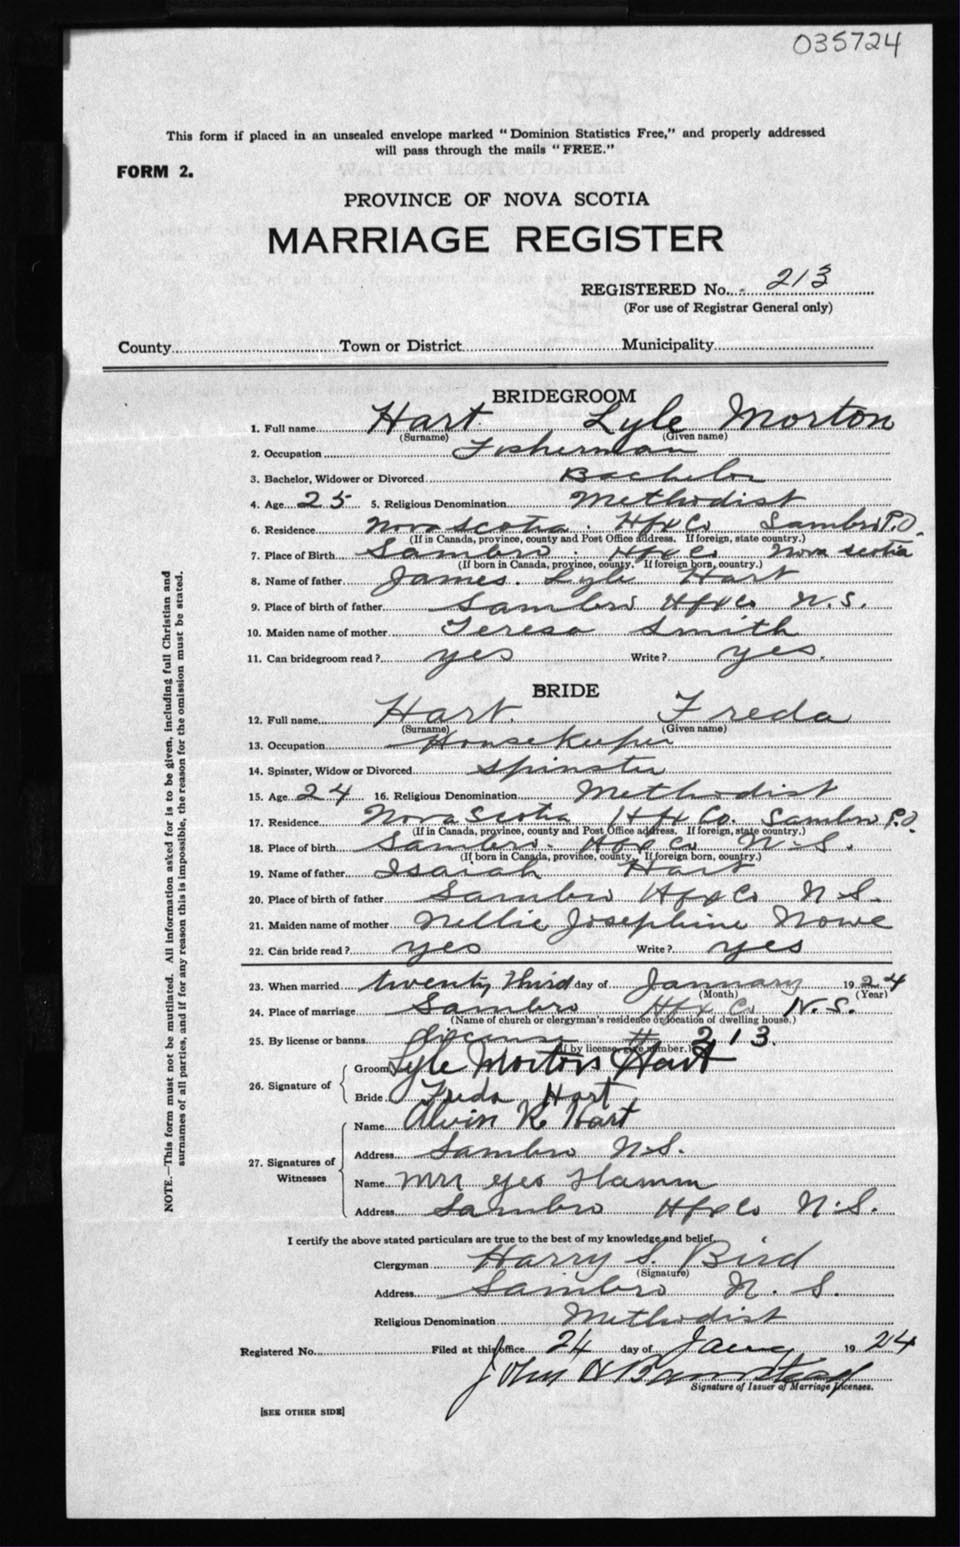 035724
This form if placed in an unsealed envelope marked "Dominion Statistics Free," and properly addressed
will pass through the mails "FREE."
FORM 2.
PROVINCE OF NOVA SCOTIA
MARRIAGE REGISTER
REGISTERED No. 213
(For use of Registrar General only)
County Town or District Municipality
BRIDEGROOM
1. Full name Hart Lyle Morton
(Surname) (Given name)
2. Occupation Fisherman
3. Bachelor, Widower or Divorced Bachelor
4. Age 25 5. Religious Denomination Methodist
6. Residence Nova Scotia. Hfx Co Sambro P.O.
(If in Canada, province, county and Post Office address. If foreign, state country.)
7. Place of Birth Sambro. Hfx Co Nova Scotia
(If born in Canada, province, county. If foreign born, country.)
8. Name of father James. Lyle Hart
9. Place of birth of father Sambro Hfx Co N.S.
10. Maiden name of mother Teresa Smith
11. Can bridegroom read? yes Write? yes.
BRIDE
12. Full name Hart. Freda
(Surname) (Given name)
13. Occupation Housekeeper
14. Spinster, Widow or Divorced Spinster
15. Age 24 16. Religious Denomination Methodist
17. Residence Nova Scotia Hfx Co. Sambro P.O.
(If in Canada, province, county and Post Office address. If foreign, state country.)
18. Place of birth Sambro. Hfx Co N.S.
(If born in Canada, province, county. If foreign born, country.)
19. Name of father Isaiah Hart
20. Place of birth of father Sambro Hfx Co N.S.
21. Maiden name of mother Nellie Josephine Nowe
22. Can bride read? yes Write? yes
23. When married twenty third day of January 1924
(Month) (Year)
24. Place of marriage Sambro Hfx Co N.S.
(Name of church or clergyman's residence or location of dwelling house.)
25. By license or banns license # 213.
(If by license, give number.)
26. Signature of
Groom Lyle Morton Hart
Bride Freda Hart
27. Signatures of Witnesses
Name Alvin R Hart
Address Sambro N.S.
Name Mrs Geo Hamm
Address Sambro Hfx Co N.S.
I certify the above stated particulars are true to the best of my knowledge and belief.
Clergyman Harry S. Bird
(Signature)
Address Sambro N. S.
Religious Denomination Methodist
Registered No. Filed at this office 24 day of Jany 1924
John H
Signature of Issuer of Marriage Licenses.
[SEE OTHER SIDE]
NOTE.—This form must not be mutilated. All information asked for is to be given, including full Christian and
surnames of all parties, and if for any reason this is impossible, the reason for the omission must be stated.